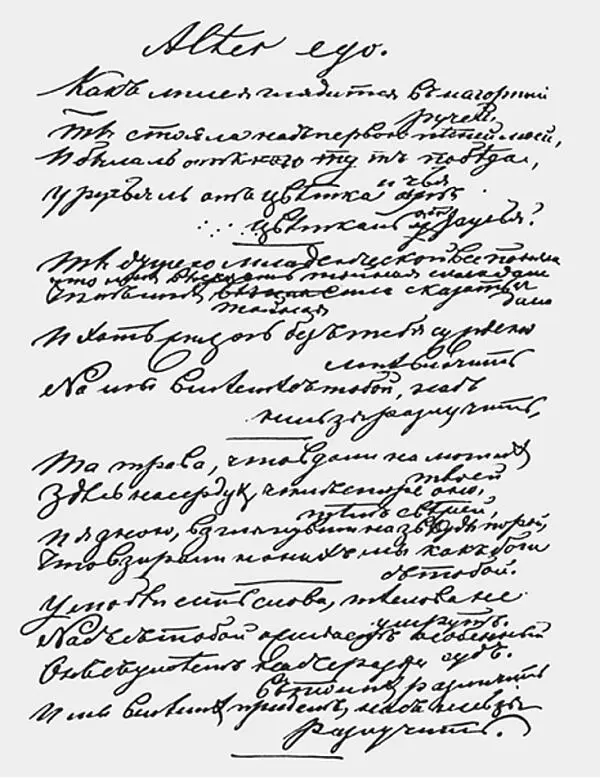 Alter ego.
Какъ лилея глядится въ нагорный
ручей,
Ты стояла надъ первою пѣсней моей,
И была ль побѣда,
У ручья ль отъ цвѣтка и чья
цвѣтка ль у ручья?
Ты душою младенческой все поняла
что мнѣ высказать тайная сила дала
сила сказать
дано
тайная
И хоть жизнь безъ тебя суждено
мнѣ влачить
Но мы вместе съ тобой, насъ
нельзя разлучить,
Та трава, что вдали на могилѣ
твоей
Здѣсь на сердцѣ, чѣмъ старе оно,
тѣмъ свѣжей,
И я знаю, взглянувши на звѣзды порой,
Что взирали на нихъ мы какъ боги
съ тобой.
У любви есть слова, тѣ слова не
умрутъ.
Насъ съ тобой ожидаетъ особенный
судъ.
Онъ сумѣетъ насъ сразу
въ толпѣ различить
И мы вместѣ придемъ, насъ нельзя
разлучить.